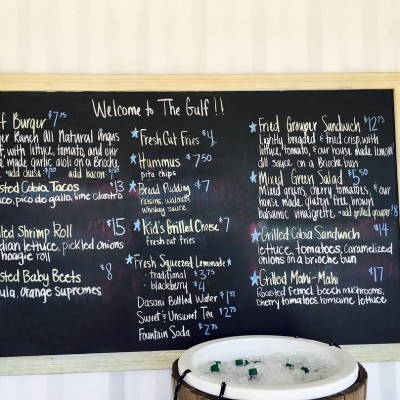 Welcome to The Gulf!!
f Burger $7.75
er Ranch All Natural Angus
f, with lettuce, tomato, and our
e made garlic aioli on a Brioche
add bacon
sted Cobia Tacos 13
uce, pico de gallo, lime cilantro
lled Shrimp Roll $15
dian lettuce, pickled onions
hoagie roll
asted Baby Beets $8
ula, orange Supremes
Fresh Cut Fries $4
Hummus $7.50
pita chips
Bread Pudding $7
raisins, walnuts,
whiskey sauce
Kid's Grilled Cheese $7
fresh cut fries
Fresh Squeezed Lemonade
- traditional $3.75
- blackberry $4
Dasani Bottled Water
Sweet & Unsweet Tea
Fountain Soda
Fried Grouper Sandwich $12.75
Lightly breaded & fried crisp, with
lettuce, tomato, & our house made lemon
dill sauce on a Brioche bun
Mixed Green Salad $5.50
Mixed greens, cherry tomatoes, & our
house made gluten free brown
balsamic vinaigrette - add grilled grouper $8
Grilled Cobia Sandwich $14
lettuce, tomatoes, caramelized
onions on a brioche bun
Grilled Mahi-Mahi $17
Roasted fennel, beech mushrooms,
cherry tomatoes, romaine lettuce